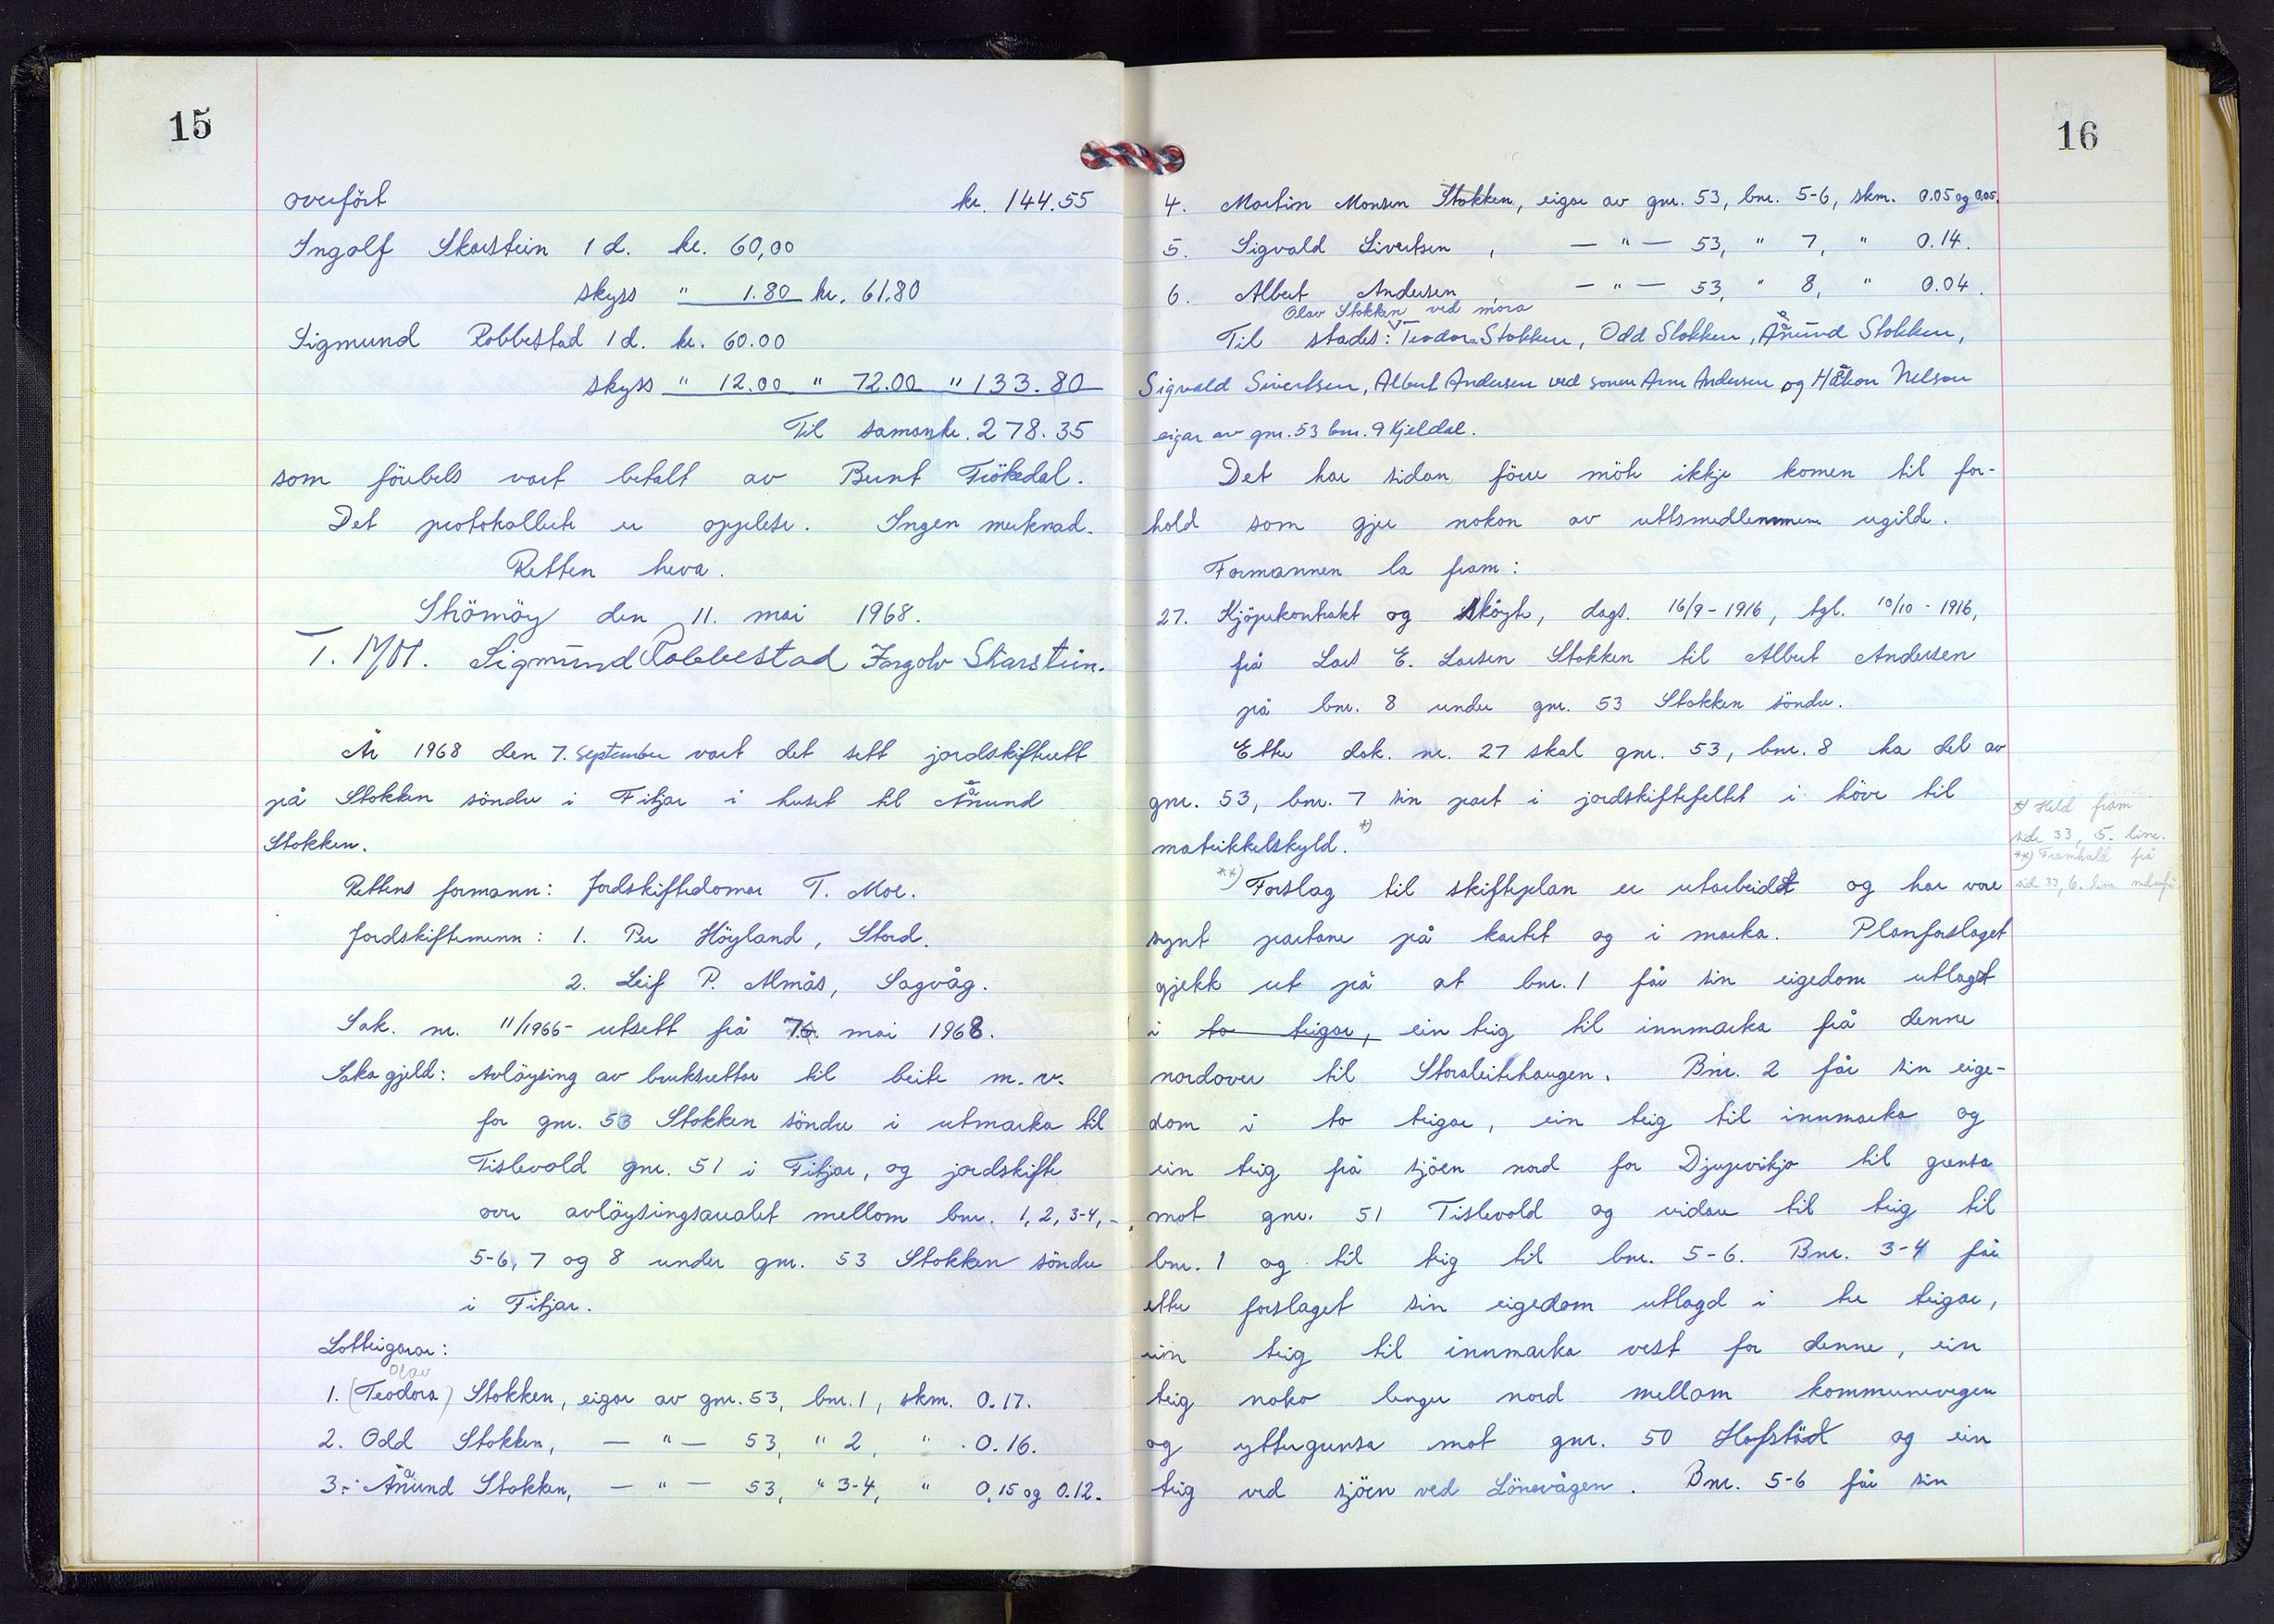 15
overfört kr. 144.55
Ingolf Skarstein 1 d. kr. 60,00
skyss " 1.80 kr. 61,80
Sigmund Robbestad 1 d. kr. 60.00
skyss " 12.00 " 72.00 " 133.80
Til saman kr. 278.35
som förebels vart betalt av Bernt Frökedal.
Det protokollerte er opplese. Ingen merknad.
Retten heva.
Strömöy den 11. mai 1968.
T. Moe. Sigmund Robbestad Ingolv Skarstein.
År 1968 den 7. September vart det sett jordskifterett
på Stokken söndre i Fitjar i huset til Ånund
Stokken.
Rettens formann: Jordskiftedomar T. Moe.
Jordskiftemenn: 1. Per Höyland, Stord.
2. Leif P. Almås, Sagvåg.
Sak. nr. 11/1966 - utsett frå 7. mai 1968.
Saka gjeld: Avlöysing av bruksrettar til beite m.v.
for gnr. 53 Stokken söndre i utmarka til
Tislevold gnr. 51 i Fitjar, og jordskifte
over avlöysingsarealet mellom bnr. 1, 2, 3-4, -
5-6, 7 og 8 under gnr. 53 Stokken söndre
i Fitjar.
Lotteigarar:
Olav
1. (Teodora) Stokken, eigar av gnr. 53, bnr. 1, skm. 0.17.
2. Odd Stokken, — " — 53, " 2, " 0.16.
3. Ånund Stokken, — " — 53, " 3-4, " 0,15 og 0.12.
16
4. Martin Monsen Stokken, eigar av gnr. 53, bnr. 5-6, skm. 0.05 og 0,05.
5. Sigvald Sivertsen, — " — 53, " 7, " 0.14.
6. Albert Andersen — " — 53, " 8, " 0.04.
Olav Stokken ved mora
Til stades: Teodora Stokken, Odd Stokken, Ånund Stokken,
Sigvald Sivertsen, Albert Andersen ved sonen Arne Andersen og Håkon Nelson
eigar av gnr. 53 bnr. 9 Kjeldal.
Det har sidan förre möte ikkje komen til for-
hold som gjer nokon av rettsmedlemmene ugilde.
Formannen la fram:
27. Kjöpekontrakt og sköyte, dags. 16/9 - 1916, tgl. 10/10 - 1916,
frå Lars E. Larsen Stokken til Albert Andersen
på bnr. 8 under gnr. 53 Stokken söndre.
Etter dok. nr. 27 skal gnr. 53, bnr. 8 ha del av
gnr. 53, bnr. 7 sin part i jordskiftefeltet i höve til
matrikkelskyld. *)
*) Held fram
side 33, 5. line.
**) Framhald frå
side 33, 6. line
**) Forslag til skifteplan er utarbeidt og har vore
synt partane på kartet og i marka. Planforslaget
gjekk ut på at bnr. 1 får sin eigedom utlagt
i to teigar, ein teig til innmarka frå denne
nordover til Storaleitehaugen. Bnr. 2 får sin eige-
dom i to teigar, ein teig til innmarka og
ein teig frå sjöen nord for Djupevikjo til grensa
mot gnr. 51 Tislevold og vidare til teig til
bnr. 1 og til teig til bnr. 5-6. Bnr. 3-4 får
etter forslaget sin eigedom utlagd i tre teigar,
ein teig til innmarka vest for denne, ein
teig noko lenger nord mellom kommunevegen
og yttergrensa mot gnr. 50 Hafstöd og ein
teig ved sjöen ved Lönevågen. Bnr. 5-6 får sin